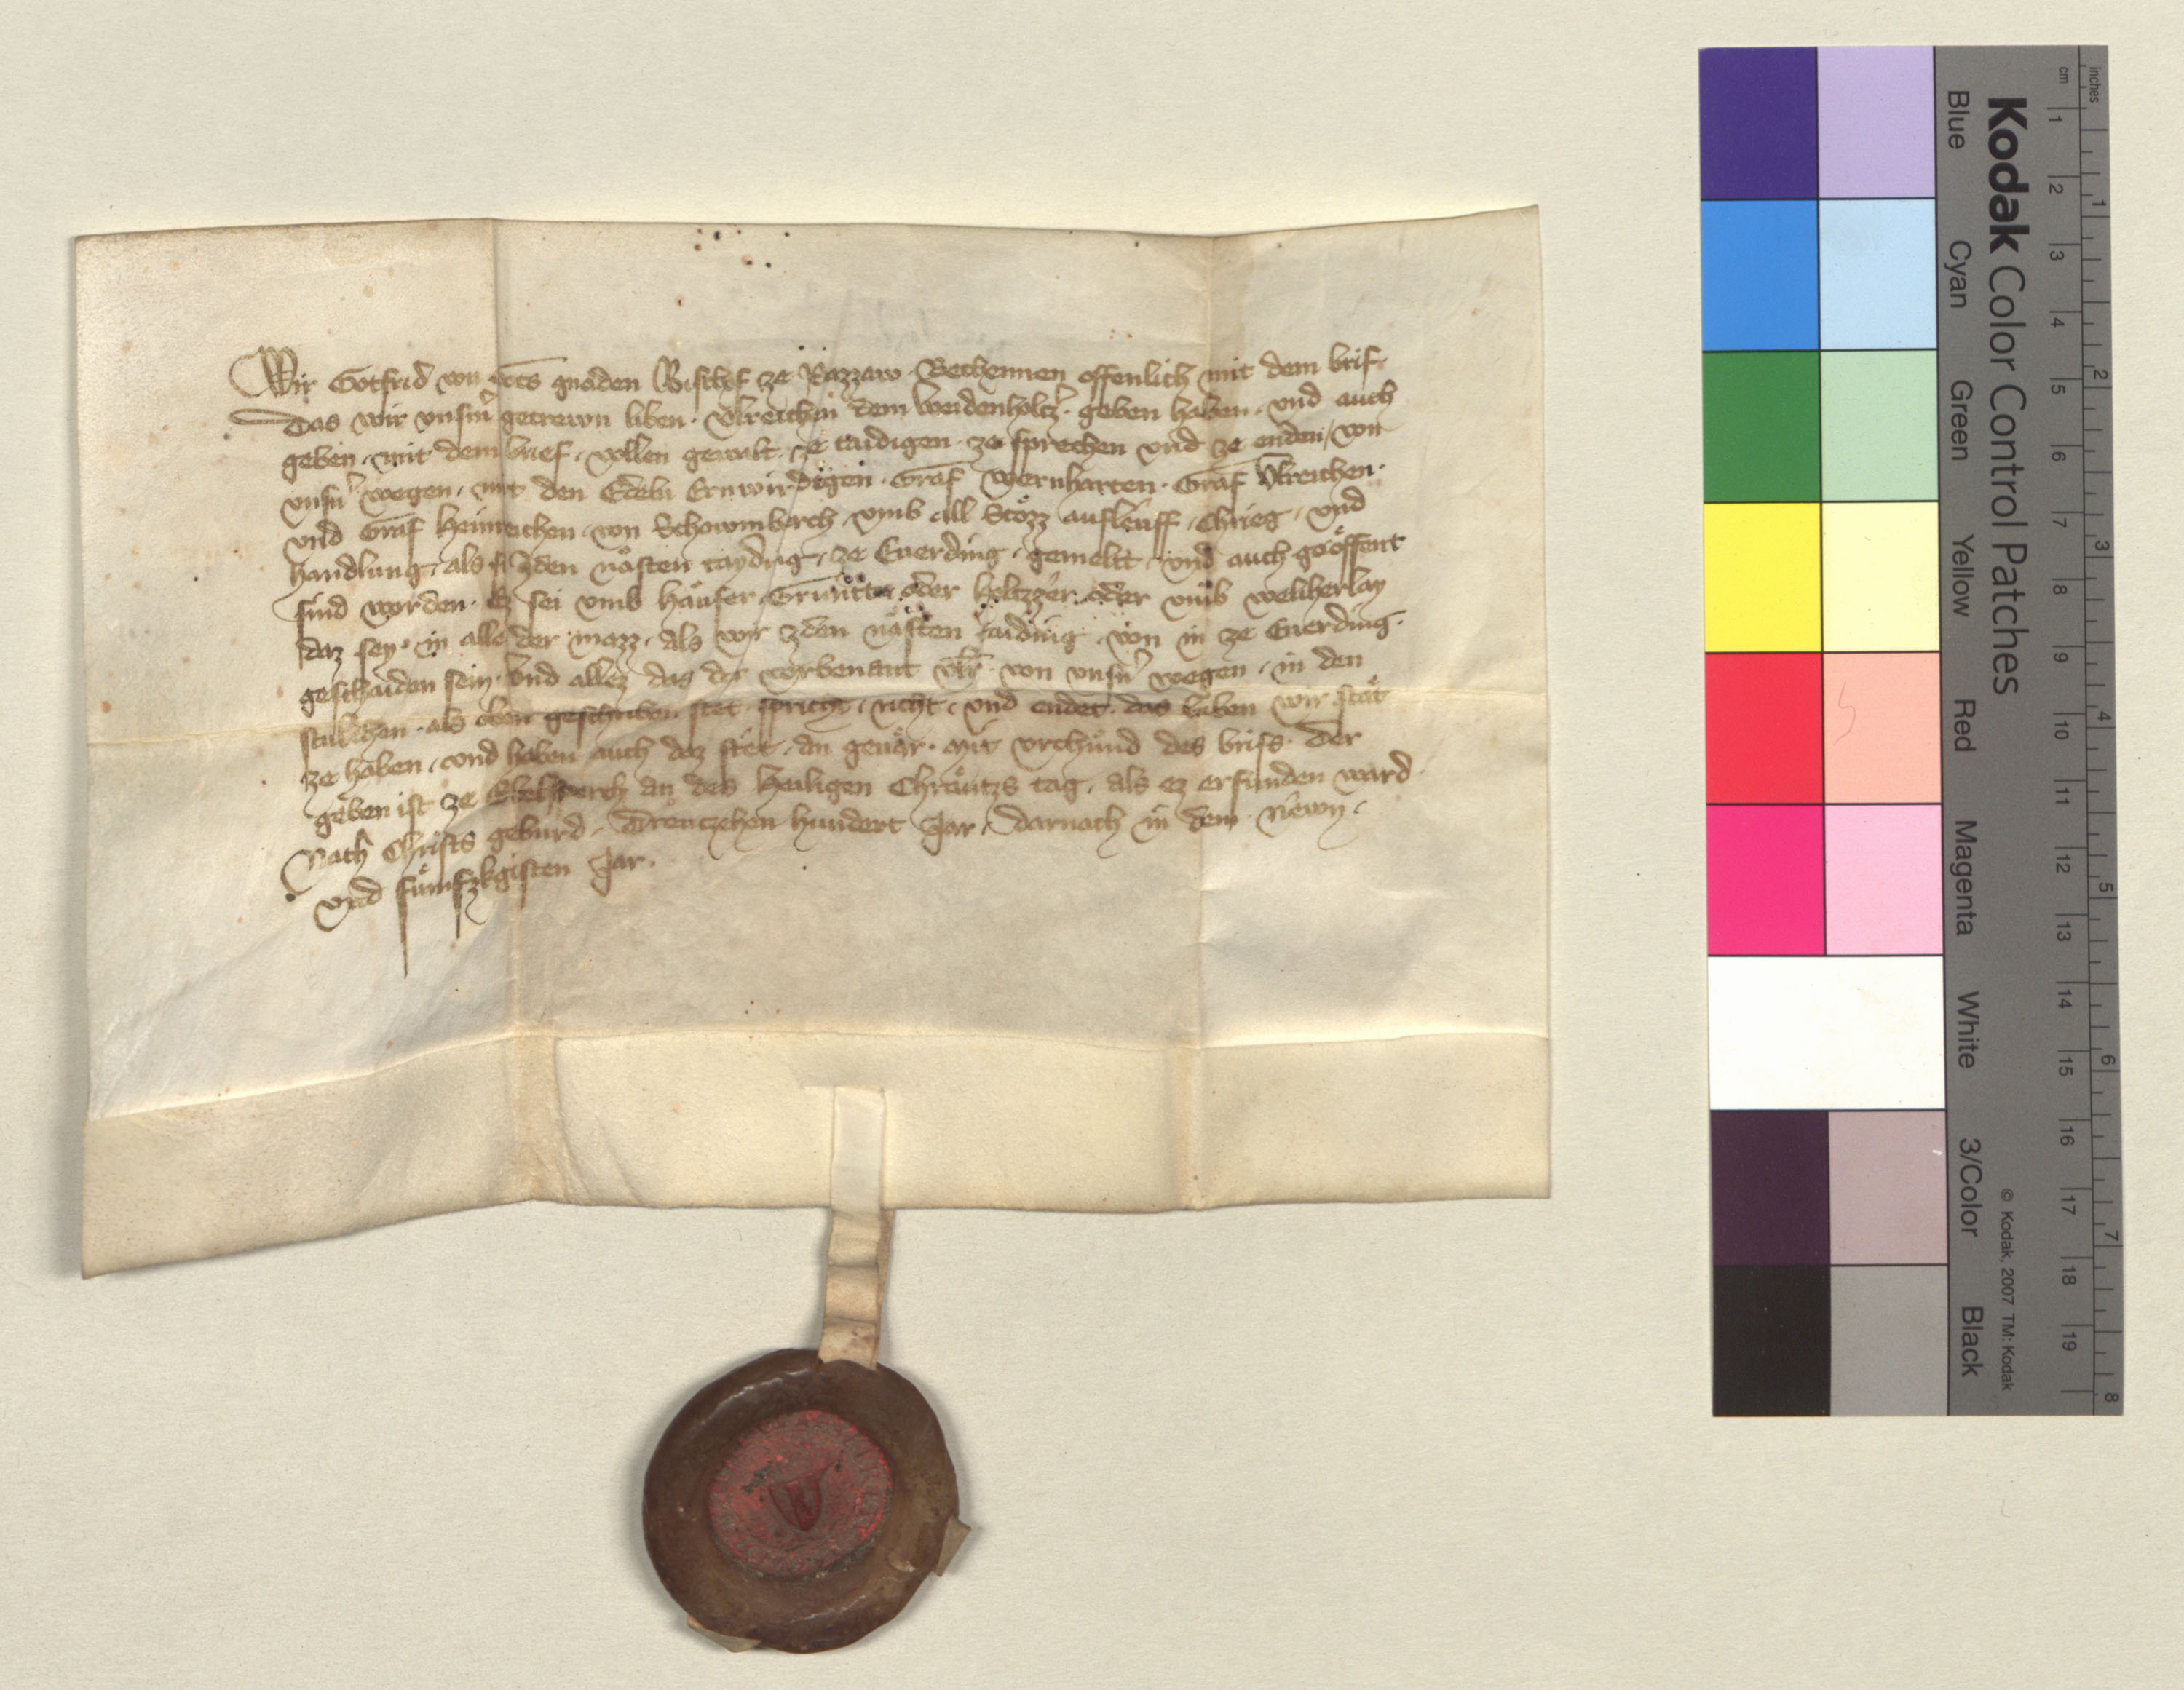 Wir Gotfrid von gots gnaden Bischof ze Pazzaw. Bechennen offenlich mit dem brif.
Das wir unserm getrewn liben. Ulreichen dem Weidenholtzer. geben haben. und auch
geben. mit dem brief. vollen gewalt. ze taidigen. ze sprechen und ze enden, von
unsern wegen. mit den Edeln Ernwirdigen. Graf Wernharten. Graf Ulreichen.
und Graf Heinreichen. von Schowmberch. umb all Stözz aufleuff. Chrieg. und
handlung. als zden nåsten tayding. ze Euerding. gemeltt. und auch geöffent
sind worden. Ez sei umb häuser. Grüntt oder holtzzer. oder umb welicherlay
daz sey. in alle der mazz. als wir zden nåsten taiding. von in ze Euerding.
geschaiden sein. Und allez das der vorbenant Ulr. von unsern wegen. in den
stukchen. als oben geschriben stet. spricht. richt. und endet. das haben wir stët
ze haben. und haben auch daz stët. an geuår. Mit urchund des brifs. Der
geben ist ze Ebelsperch an des Heiligen Chräutzs tag. als ez erfunden ward
Nach Christs geburd. Dreutzehen hundert Jar. Darnach in dem. Newn.
und fümfzkgisten Jar.
Kodak Color Control Patches
Blue Cyan Green Yellow Red Magenta White 3/Color Black
© Kodak, 2007 TM: Kodak
cm 1 2 3 4 5 6 7 8 9 10 11 12 13 14 15 16 17 18 19
inches 1 2 3 4 5 6 7 8